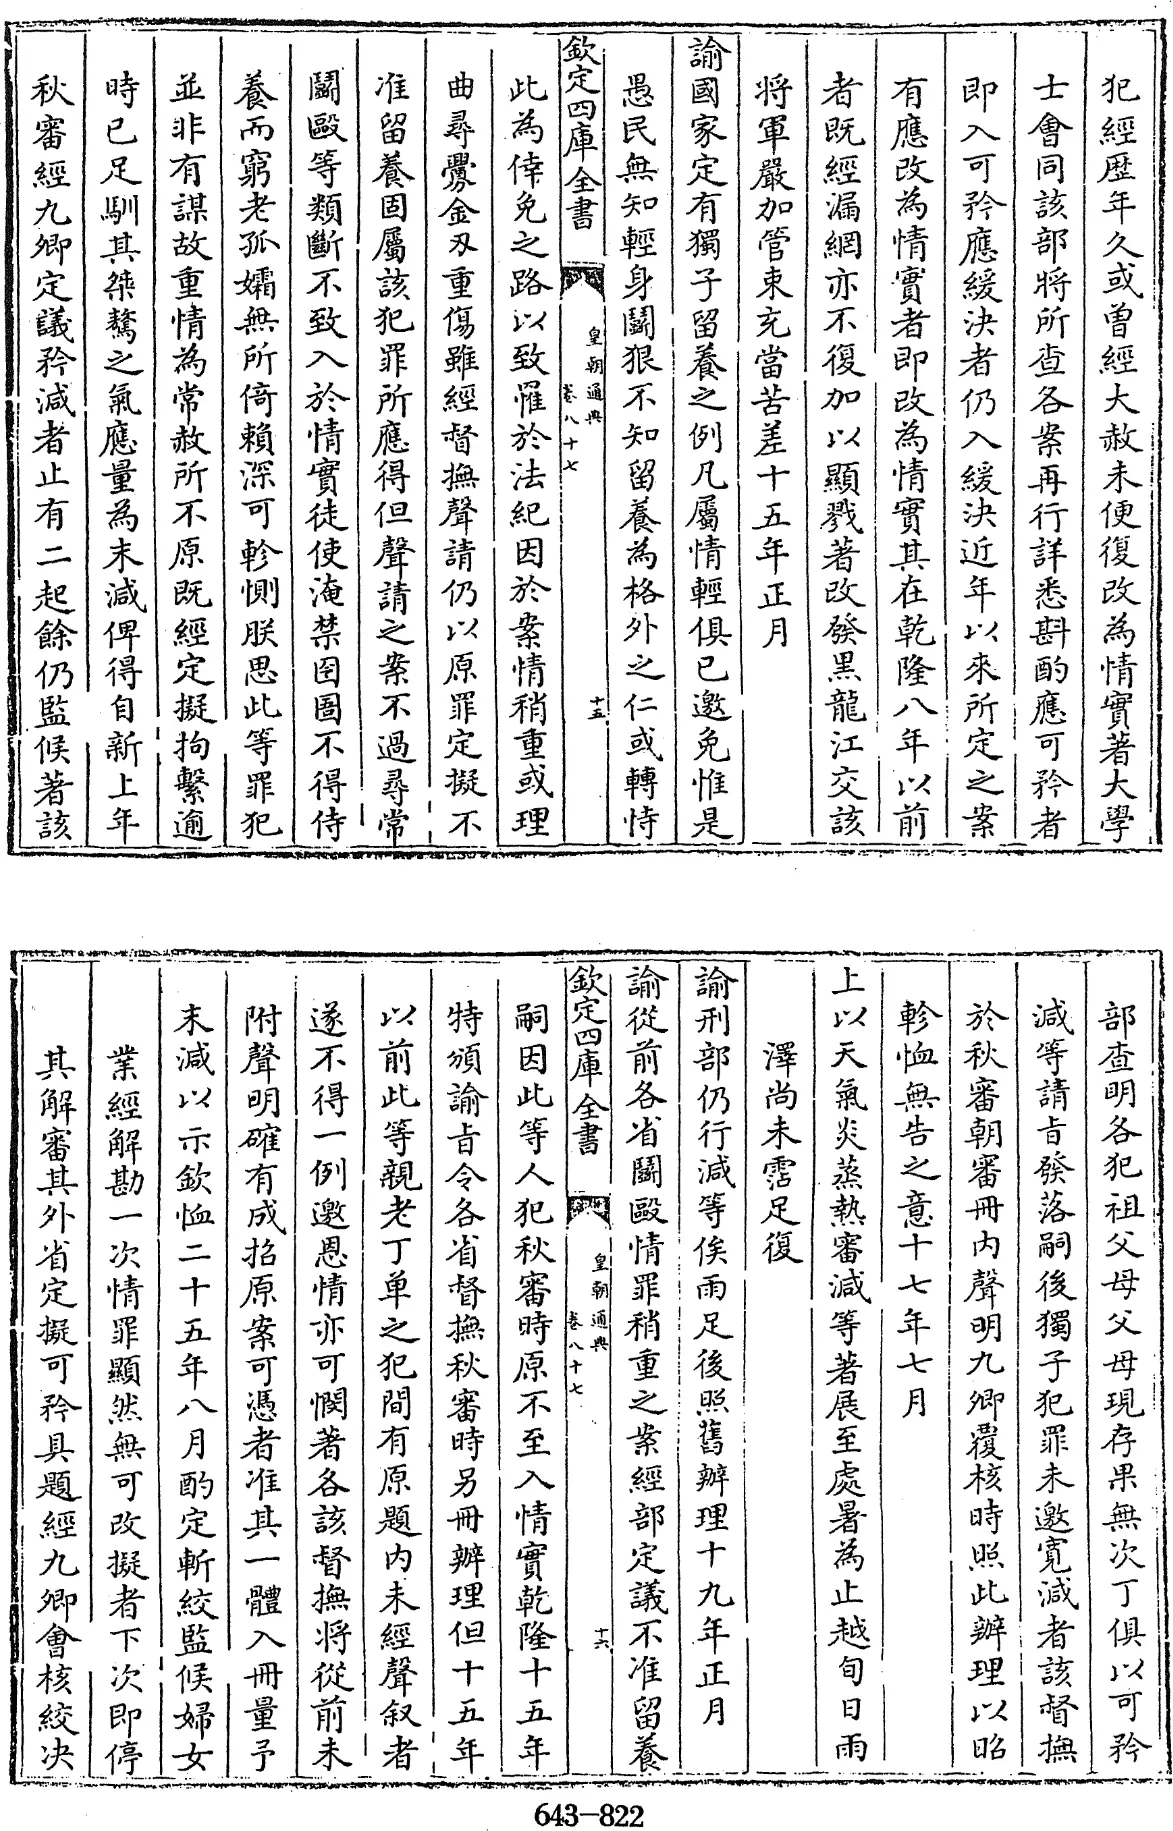 犯經歷年久或曽經大赦未便復改為情實著大學
士會同該部將所查各案再行詳悉斟酌應可矜者
即入可矜應緩決者仍入緩決近年以來所定之案
有應改為情實者即改為情實其在乾隆八年以前
者既經漏網亦不復加以顯戮著改發黒龍江交該
將軍嚴加管束充當苦差十五年正月
諭國家定有獨子留養之例凡屬情輕俱已邀免惟是
愚民無知輕身鬬狠不知留養為格外之仁或轉恃
欽定四庫全書
皇朝通典
卷八十七
十五
此為倖免之路以致罹於法紀因於案情稍重或理
曲尋釁金刃重傷雖經督撫聲請仍以原罪定擬不
准留養固屬該犯罪所應得但聲請之案不過尋常
鬬毆等類斷不致入於情實徒使淹禁囹圄不得侍
養而窮老孤孀無所倚賴深可軫惻朕思此等罪犯
並非有謀故重情為常赦所不原既經定擬拘繫逾
時已足馴其桀驁之氣應量為末減俾得自新上年
秋審經九卿定議矜減者止有二起餘仍監候著該
部查明各犯祖父母父母現存果無次丁俱以可矜
減等請㫖發落嗣後獨子犯罪未邀寛減者該督撫
於秋審朝審冊内聲明九卿覆核時照此辦理以昭
軫恤無告之意十七年七月
上以天氣炎蒸熱審減等著展至處暑為止越旬日雨
澤尚未霑足復
諭刑部仍行減等俟雨足後照舊辦理十九年正月
諭從前各省鬬毆情罪稍重之案經部定議不准留養
欽定四庫全書
皇朝通典
卷八十七
十六
嗣因此等人犯秋審時原不至入情實乾隆十五年
特頒諭㫖令各省督撫秋審時另冊辦理但十五年
以前此等親老丁单之犯間有原題内未經聲叙者
遂不得一例邀恩情亦可憫著各該督撫將從前未
附聲明確有成招原案可憑者准其一體入冊量予
末減以示欽恤二十五年八月酌定斬絞監候婦女
業經解勘一次情罪顯然無可改擬者下次即停
其解審其外省定擬可矜具題經九卿會核絞决
643-822